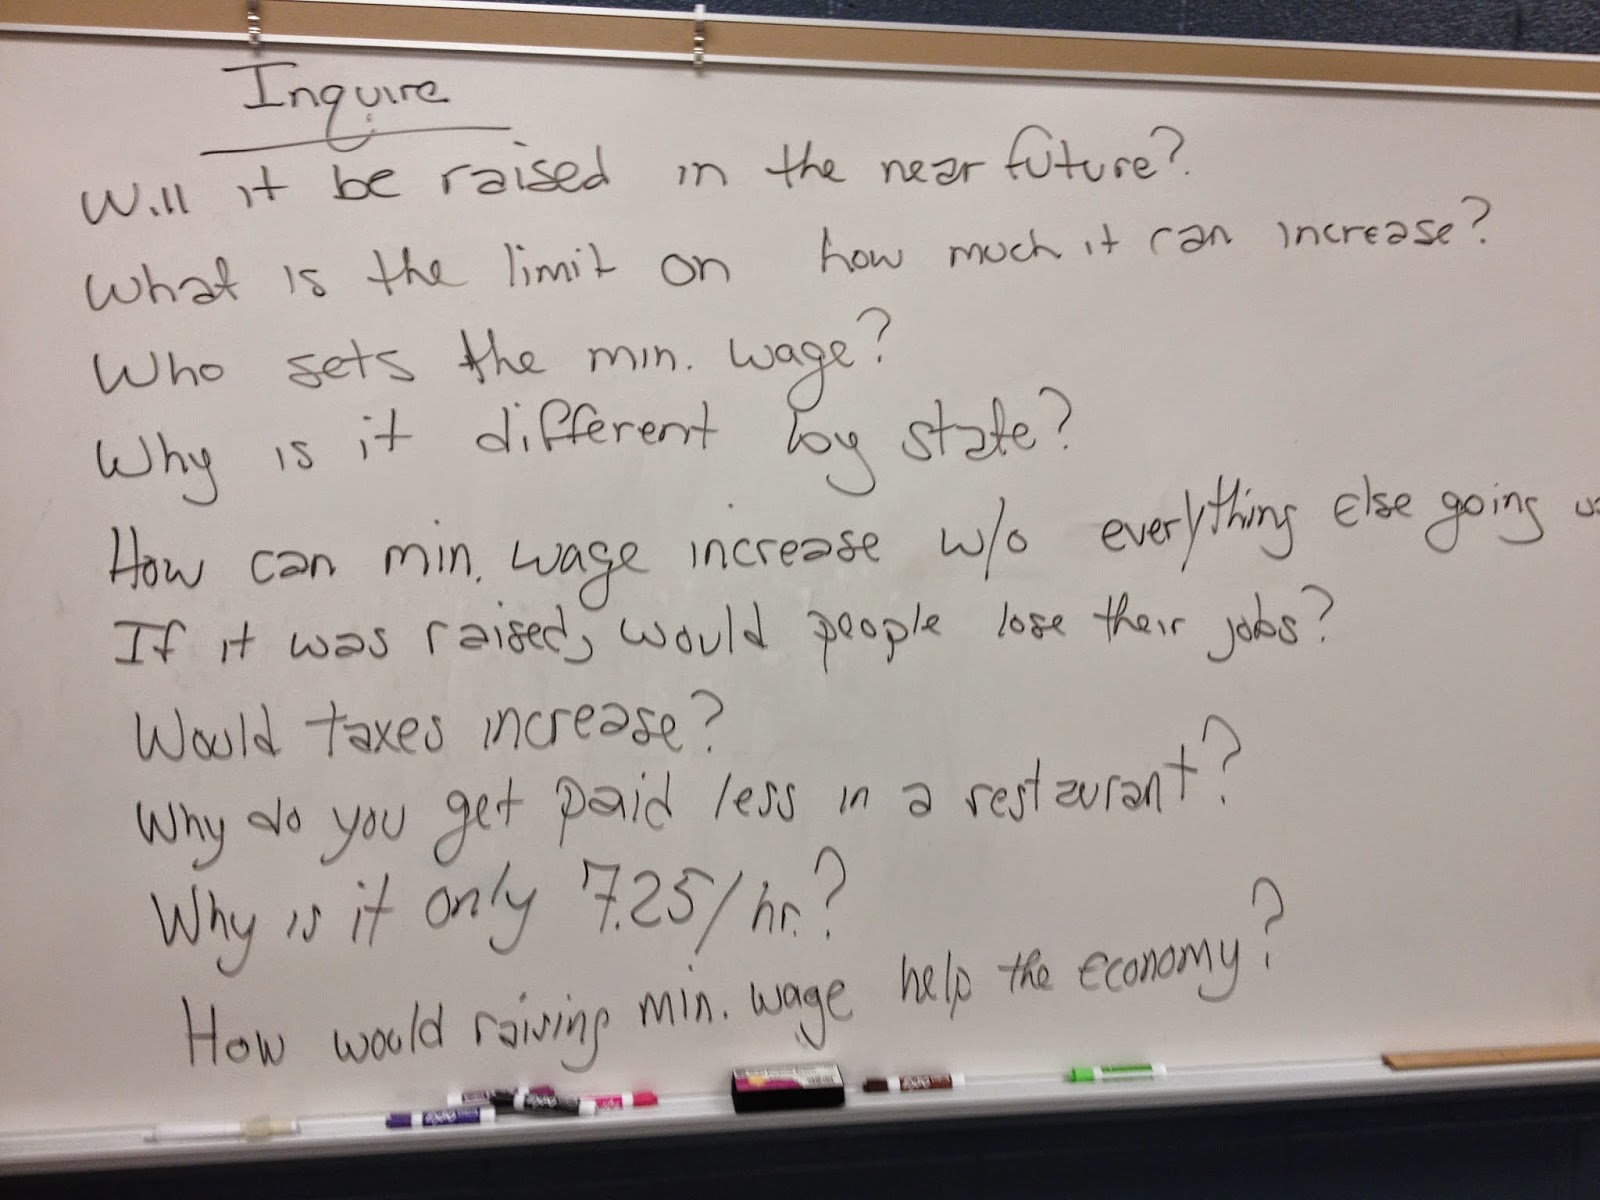 Inquire
Will it be raised in the near future?
What is the limit on how much it can increase?
Who sets the min. wage?
Why is it different by state?
How can min. wage increase w/o everything else going
If it was raised, would people lose their jobs?
Would taxes increase?
Why do you get paid less in a restaurant?
Why is it only 7.25/hr.?
How would raising min. wage help the economy?